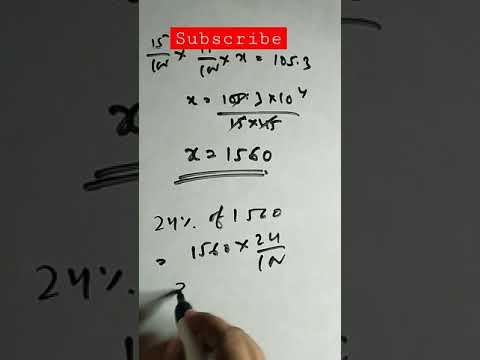 Subscribe
15/100 × /100 × x = 105.3
x = 105.3×10⁴
15×45
x = 1560
24% of 1560
= 1560 × 24/100